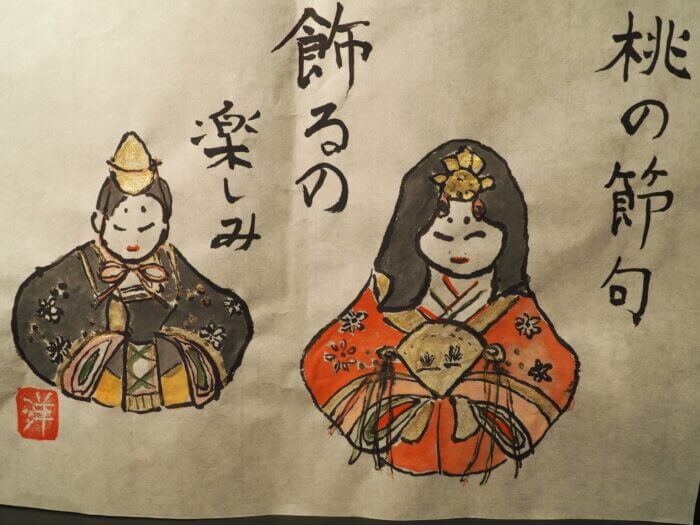 桃の節句
飾るの
楽しみ
洋